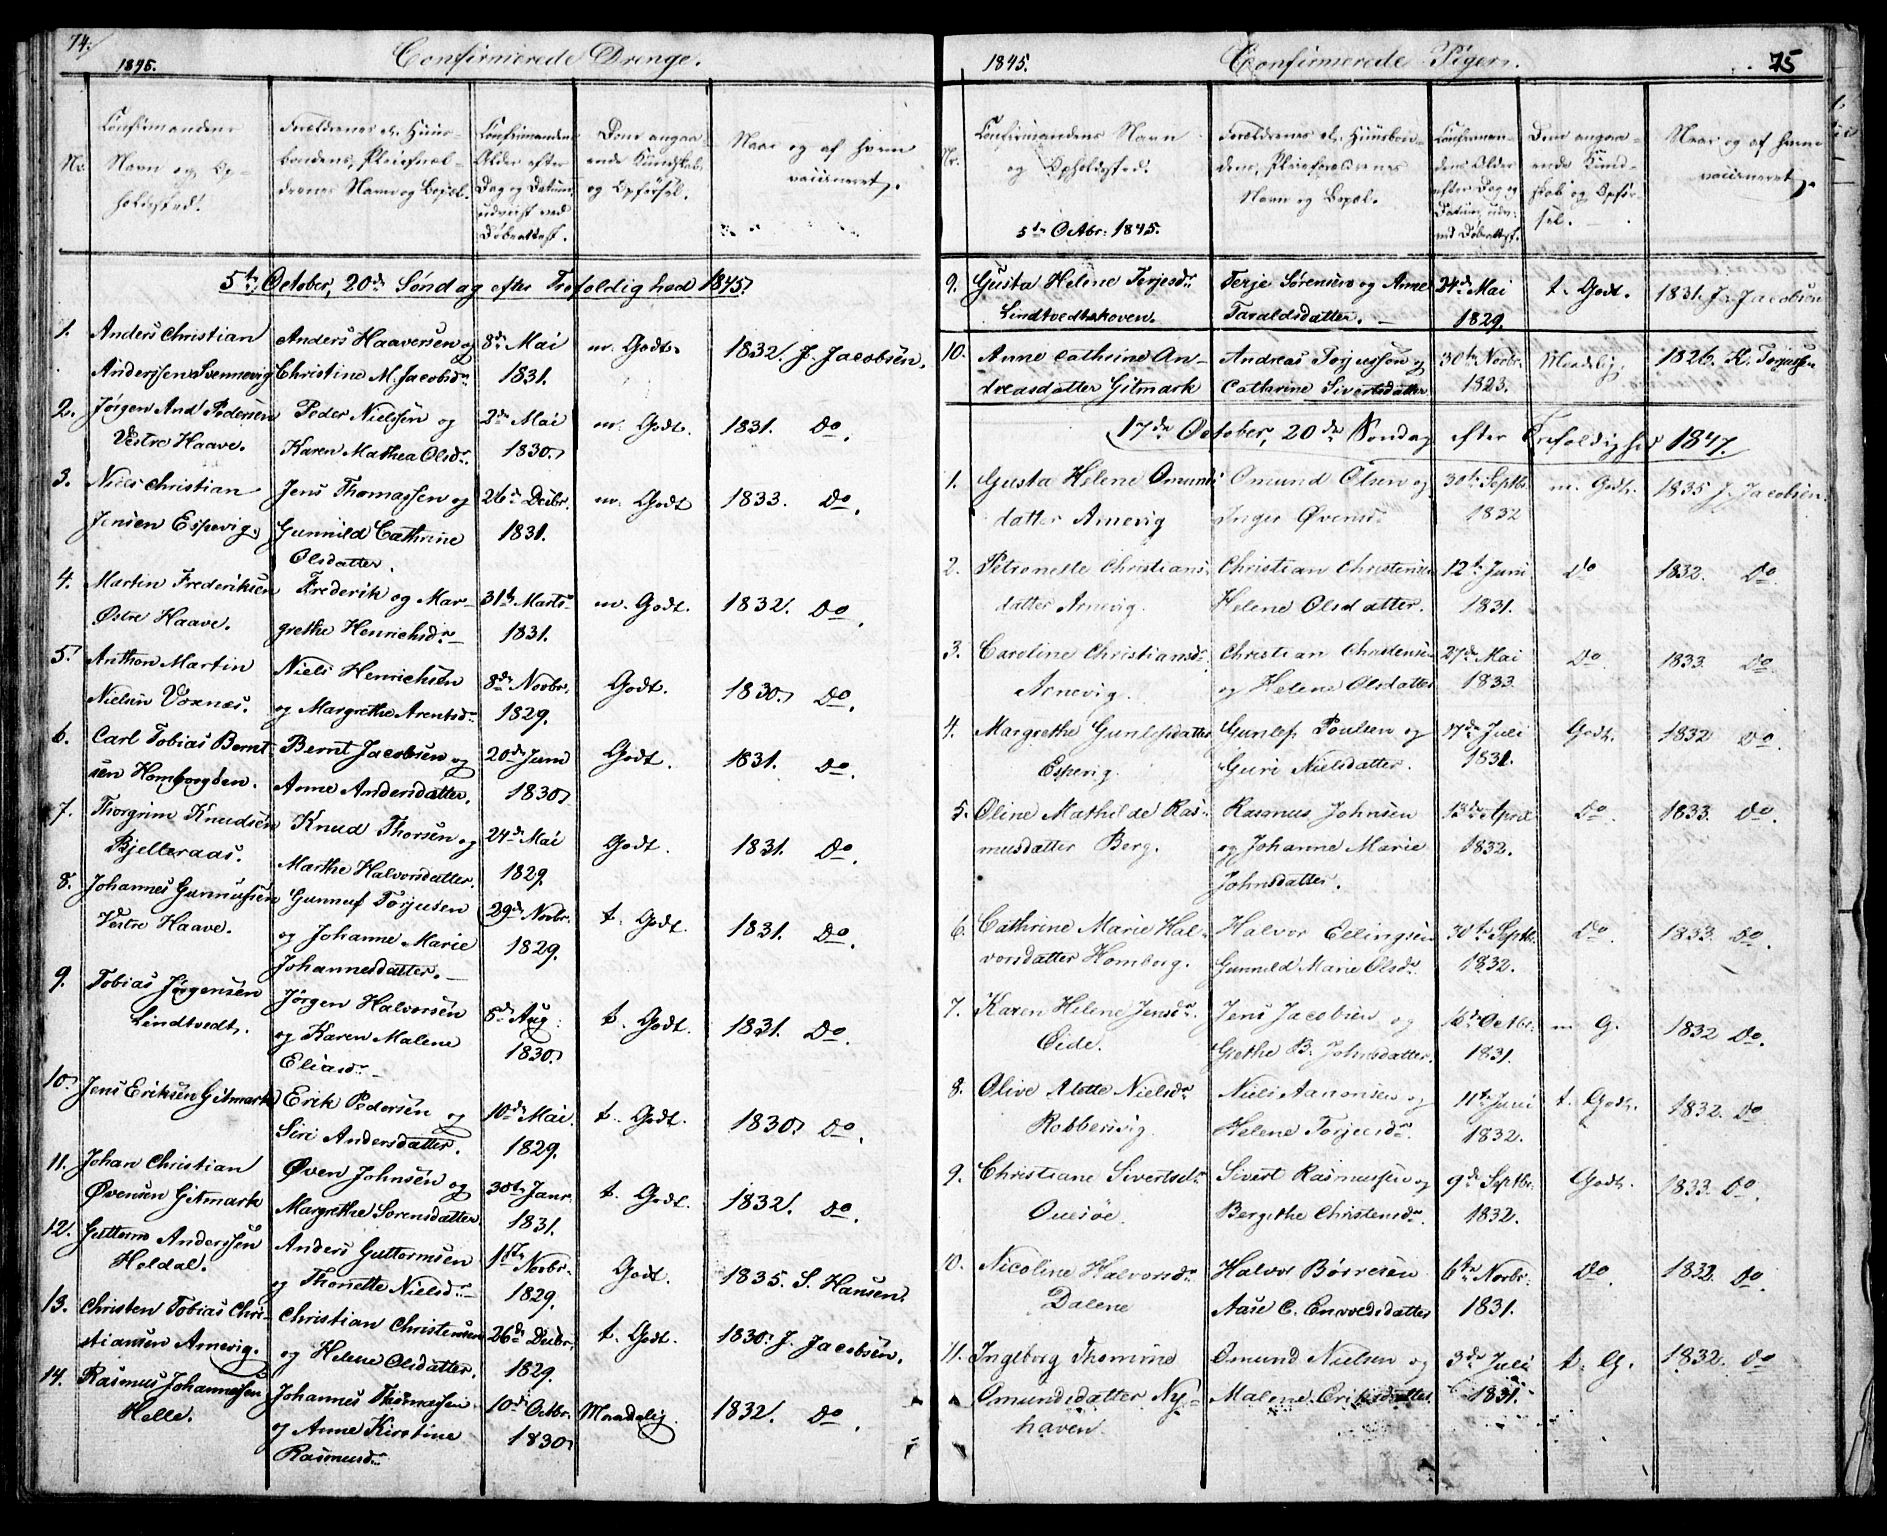 74.
1845.
Confirmerede Drenge.
No.
Confirmandens
Navn og Op-
holdsted.
Forældrenes el. Huus-
bondens, Pleieforæl-
drenes Navn og Bopæl.
Confirmandens
Alder efter
Dag og Datum,
udviist ved
Døbeattest.
Dom angaa-
ende Kundskab
og Opførsel.
Naar og af hvem
vaccineret.
5te October, 20de Søndag efter Trefoldighed 1845.
1. Anders Christian Anders Haaversen og 8de Mai m. Godt. 1832. J. Jacobsen.
Anderssen Svennevig Christine M. Jacobsdr 1831.
2. Jørgen And Pedersen Peder Nielssen og 2de Mai m. Godt. 1831. Do.
Vestre Haave. Karen Mathea Olsdr. 1830.
3. Niels Christian Jens Thomassen og 26de Decbr. m. Godt 1833. Do.
Jensen Espevig. Gunnild Cathrine 1831.
Olsdatter.
4. Martin Frederiksen Frederik og Mar- 31te Marts m. Godt. 1832. Do.
Østre Haave. grethe Henrichsdr. 1831.
5. Anthon Martin Niels Henrichsen 8de Novbr. Godt. 1830. Do.
Nielsen Voxnæs. og Margrethe Arentsdr 1829.
6. Carl Tobias Bernt- Bernt Jacobsen og 20de Juni Godt. 1831. Do.
sen Homborgsen. Anne Andersdatter. 1830.
7. Thorgrim Knudsen Knud Thorsen og 24de Mai Godt. 1831. Do.
Bjelleraas. Marthe Halvorsdatter. 1829.
8. Johannes Gunnufsen Gunnuf Torjusen 29de Novbr. t. Godt. 1831. Do.
Vestre Haave. og Johanne Marie 1829.
Johannesdatter.
9. Tobias Jørgensen Jørgen Halvorsen 5de Aug. t. Godt. 1831. Do.
Lindtvedt. og Karen Malene 1830.
Eliasdr
10. Jens Eriksen Gitmark Erik Pedersen og 10de Mai t. Godt. 1830. Do.
Siri Andersdatter. 1829.
11. Johan Christian Øven Johnsen og 30te Janr. t. Godt. 1832. Do.
Øvensen Gitmark Margrethe Sørensdatter. 1831.
12. Guttorm Anderssen Anders Guttormsen 1ste Novbr. Godt. 1835. S. Hansen.
Heldal. og Thonette Nielsdr 1829.
13. Christen Tobias Chri- Christian Christensen 26de Decbr. t. Godt. 1830. J. Jacobsen.
stiansen Arnevig. og Helene Olsdatter. 1829.
14. Rasmus Johannessen Johannes Thomassen 10de Octbr. Maadelig. 1832. Do.
Helle. og Anne Kirstine 1830.
Rasmusdr
1845.
Confirmerede Piger.
75
Nr.
Confirmandens Navn
og Opholdssted.
5te Octbr. 1845.
Forældrenes el. Huusbon-
dens, Pleieforældrenes
Navn og Bopæl.
Confirman-
dens Alder
efter Dag og
Datum, udv.
ved Døbeattest.
Dom angaa-
ende Kund-
skab og Opfør-
sel.
Naar og af hvem
vaccineret.
9. Gusta Helene Terjesdr Terje Sørensen og Anne 24de Mai t. Godt. 1831. J. Jacobsen
Lindtvedtskoven. Taraldsdatter. 1829.
10. Anne Cathrine An- Andreas Torjussen og 30te Novbr. Maadelig. 1826. K. Torjussen
dreasdatter Gitmark Cathrine Sivertsdatter 1823.
17de October, 20de Søndag efter Trefoldighed 1847.
1. Gusta Helene Omunds Omund Olsen og 30te Septbr. m. Godt. 1835 J. Jacobsen.
datter Arnevig Inger Øvensdr 1832
2. Petronelle Christians- Christian Christensen 12te Juni Do 1832. Do
datter Arnevig. Helene Olsdatter. 1831.
3. Caroline Christiansdr. Christian Christensen 27de Mai Do. 1833. Do
Arnevig. og Helene Olsdatter 1833
4. Margrethe Gunlefsdatter Gunlef Poulsen og 17de Juli Godt. 1832 Do.
Espevig. Guri Nielsdatter. 1831.
5. Oline Mathilde Ras- Rasmus Johnsen 13de April Do. 1833. Do.
musdatter Berg. og Johanne Marie 1832.
Johnsdatter.
6. Cathrine Marie Hal- Halvor Ellingsen 30te Septbr. Do. 1833. Do.
vorsdatter Homborg. Gunnild Marie Olsdr. 1832.
7. Karen Helene Jensdr. Jens Jacobsen og 16de Octbr. m. G. 1832 Do.
Eide. Grethe B. Johnsdatter. 1831.
8. Olive Alette Nielsdr Niels Aanonsen og 11te Juni t. Godt. 1832. Do
Robbervig. Helene Torjusdr. 1832.
9. Christiane Sivertsdr Sivert Rasmussen og 9de Septbr. Godt. 1833. Do.
Auesøe. Bergithe Christensdr. 1832.
10. Nicoline Halvorsdr. Halvor Børresen 6te Novbr. Do. 1832. Do
Dalene Aase C. Envoldsdatter 1831.
11. Ingeborg Thomine Omund Nielsen og 3de Juli t. G. 1832. Do
Omundsdatter Ny- Malene Eriksdatter 1831.
haven.